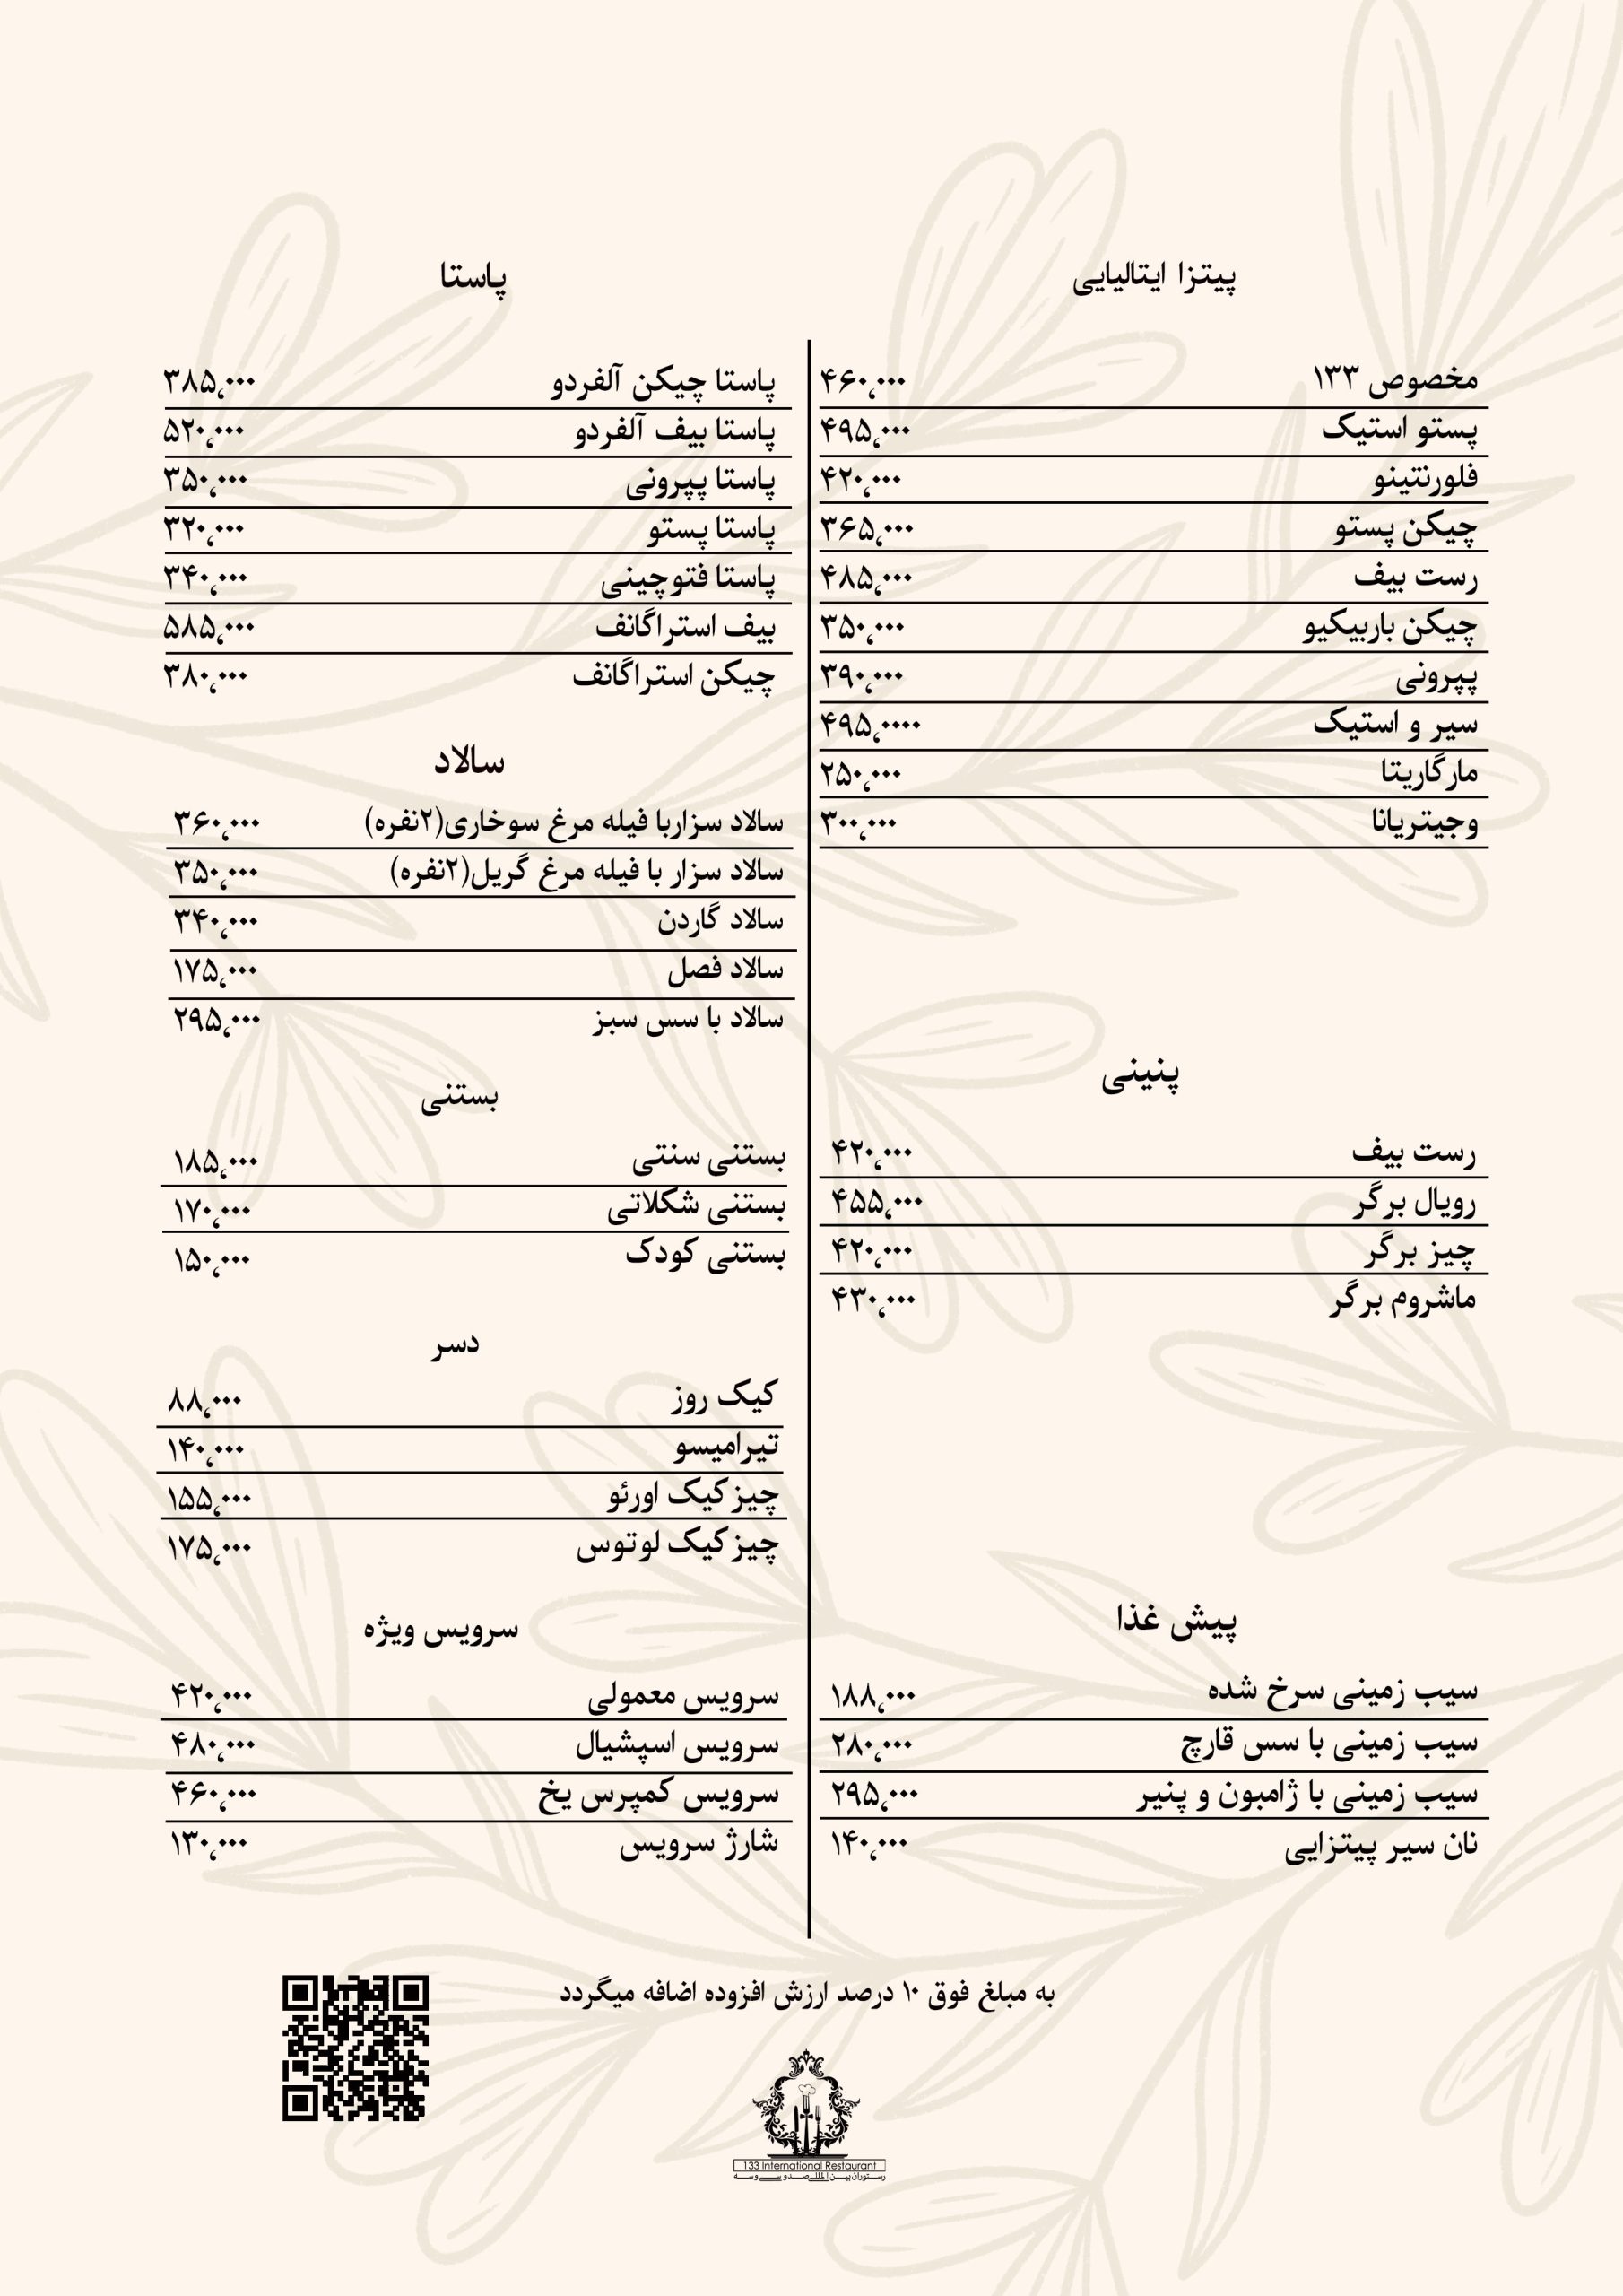 پیتزا ایتالیایی
مخصوص ۱۳۳ ۴۶۰،۰۰۰
پستو استیک ۴۹۵،۰۰۰
فلورنتینو ۴۲۰،۰۰۰
چیکن پستو ۳۶۵،۰۰۰
رست بیف ۴۸۵،۰۰۰
چیکن باربیکیو ۳۵۰،۰۰۰
پپرونی ۳۹۰،۰۰۰
سیر و استیک ۴۹۵،۰۰۰۰
مارگاریتا ۲۵۰،۰۰۰
وجیتریانا ۳۰۰،۰۰۰
پنینی
رست بیف ۴۲۰،۰۰۰
رویال برگر ۴۵۵،۰۰۰
چیز برگر ۴۲۰،۰۰۰
ماشروم برگر ۴۳۰،۰۰۰
پیش غذا
سیب زمینی سرخ شده ۱۸۸،۰۰۰
سیب زمینی با سس قارچ ۲۸۰،۰۰۰
سیب زمینی با ژامبون و پنیر ۲۹۵،۰۰۰
نان سیر پیتزایی ۱۴۰،۰۰۰
پاستا
پاستا چیکن آلفردو ۳۸۵،۰۰۰
پاستا بیف آلفردو ۵۲۰،۰۰۰
پاستا پپرونی ۳۵۰،۰۰۰
پاستا پستو ۳۲۰،۰۰۰
پاستا فتوچینی ۳۴۰،۰۰۰
بیف استراگانف ۵۸۵،۰۰۰
چیکن استراگانف ۳۸۰،۰۰۰
سالاد
سالاد سزاربا فیله مرغ سوخاری(۲نفره) ۳۶۰،۰۰۰
سالاد سزار با فیله مرغ گریل(۲نفره) ۳۵۰،۰۰۰
سالاد گاردن ۳۴۰،۰۰۰
سالاد فصل ۱۷۵،۰۰۰
سالاد با سس سبز ۲۹۵،۰۰۰
بستنی
بستنی سنتی ۱۸۵،۰۰۰
بستنی شکلاتی ۱۷۰،۰۰۰
بستنی کودک ۱۵۰،۰۰۰
دسر
کیک روز ۸۸،۰۰۰
تیرامیسو ۱۴۰،۰۰۰
چیزکیک اورئو ۱۵۵،۰۰۰
چیزکیک لوتوس ۱۷۵،۰۰۰
سرویس ویژه
سرویس معمولی ۴۲۰،۰۰۰
سرویس اسپشیال ۴۸۰،۰۰۰
سرویس کمپرس یخ ۴۶۰،۰۰۰
شارژ سرویس ۱۳۰،۰۰۰
به مبلغ فوق ۱۰ درصد ارزش افزوده اضافه میگردد
133 International Restaurant
رستوران بین المللی صد و سی و سه